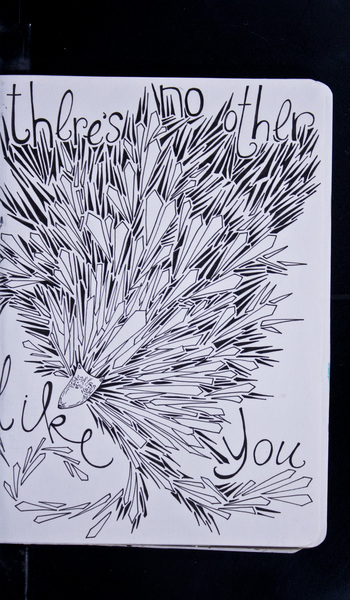 there's no other
like you